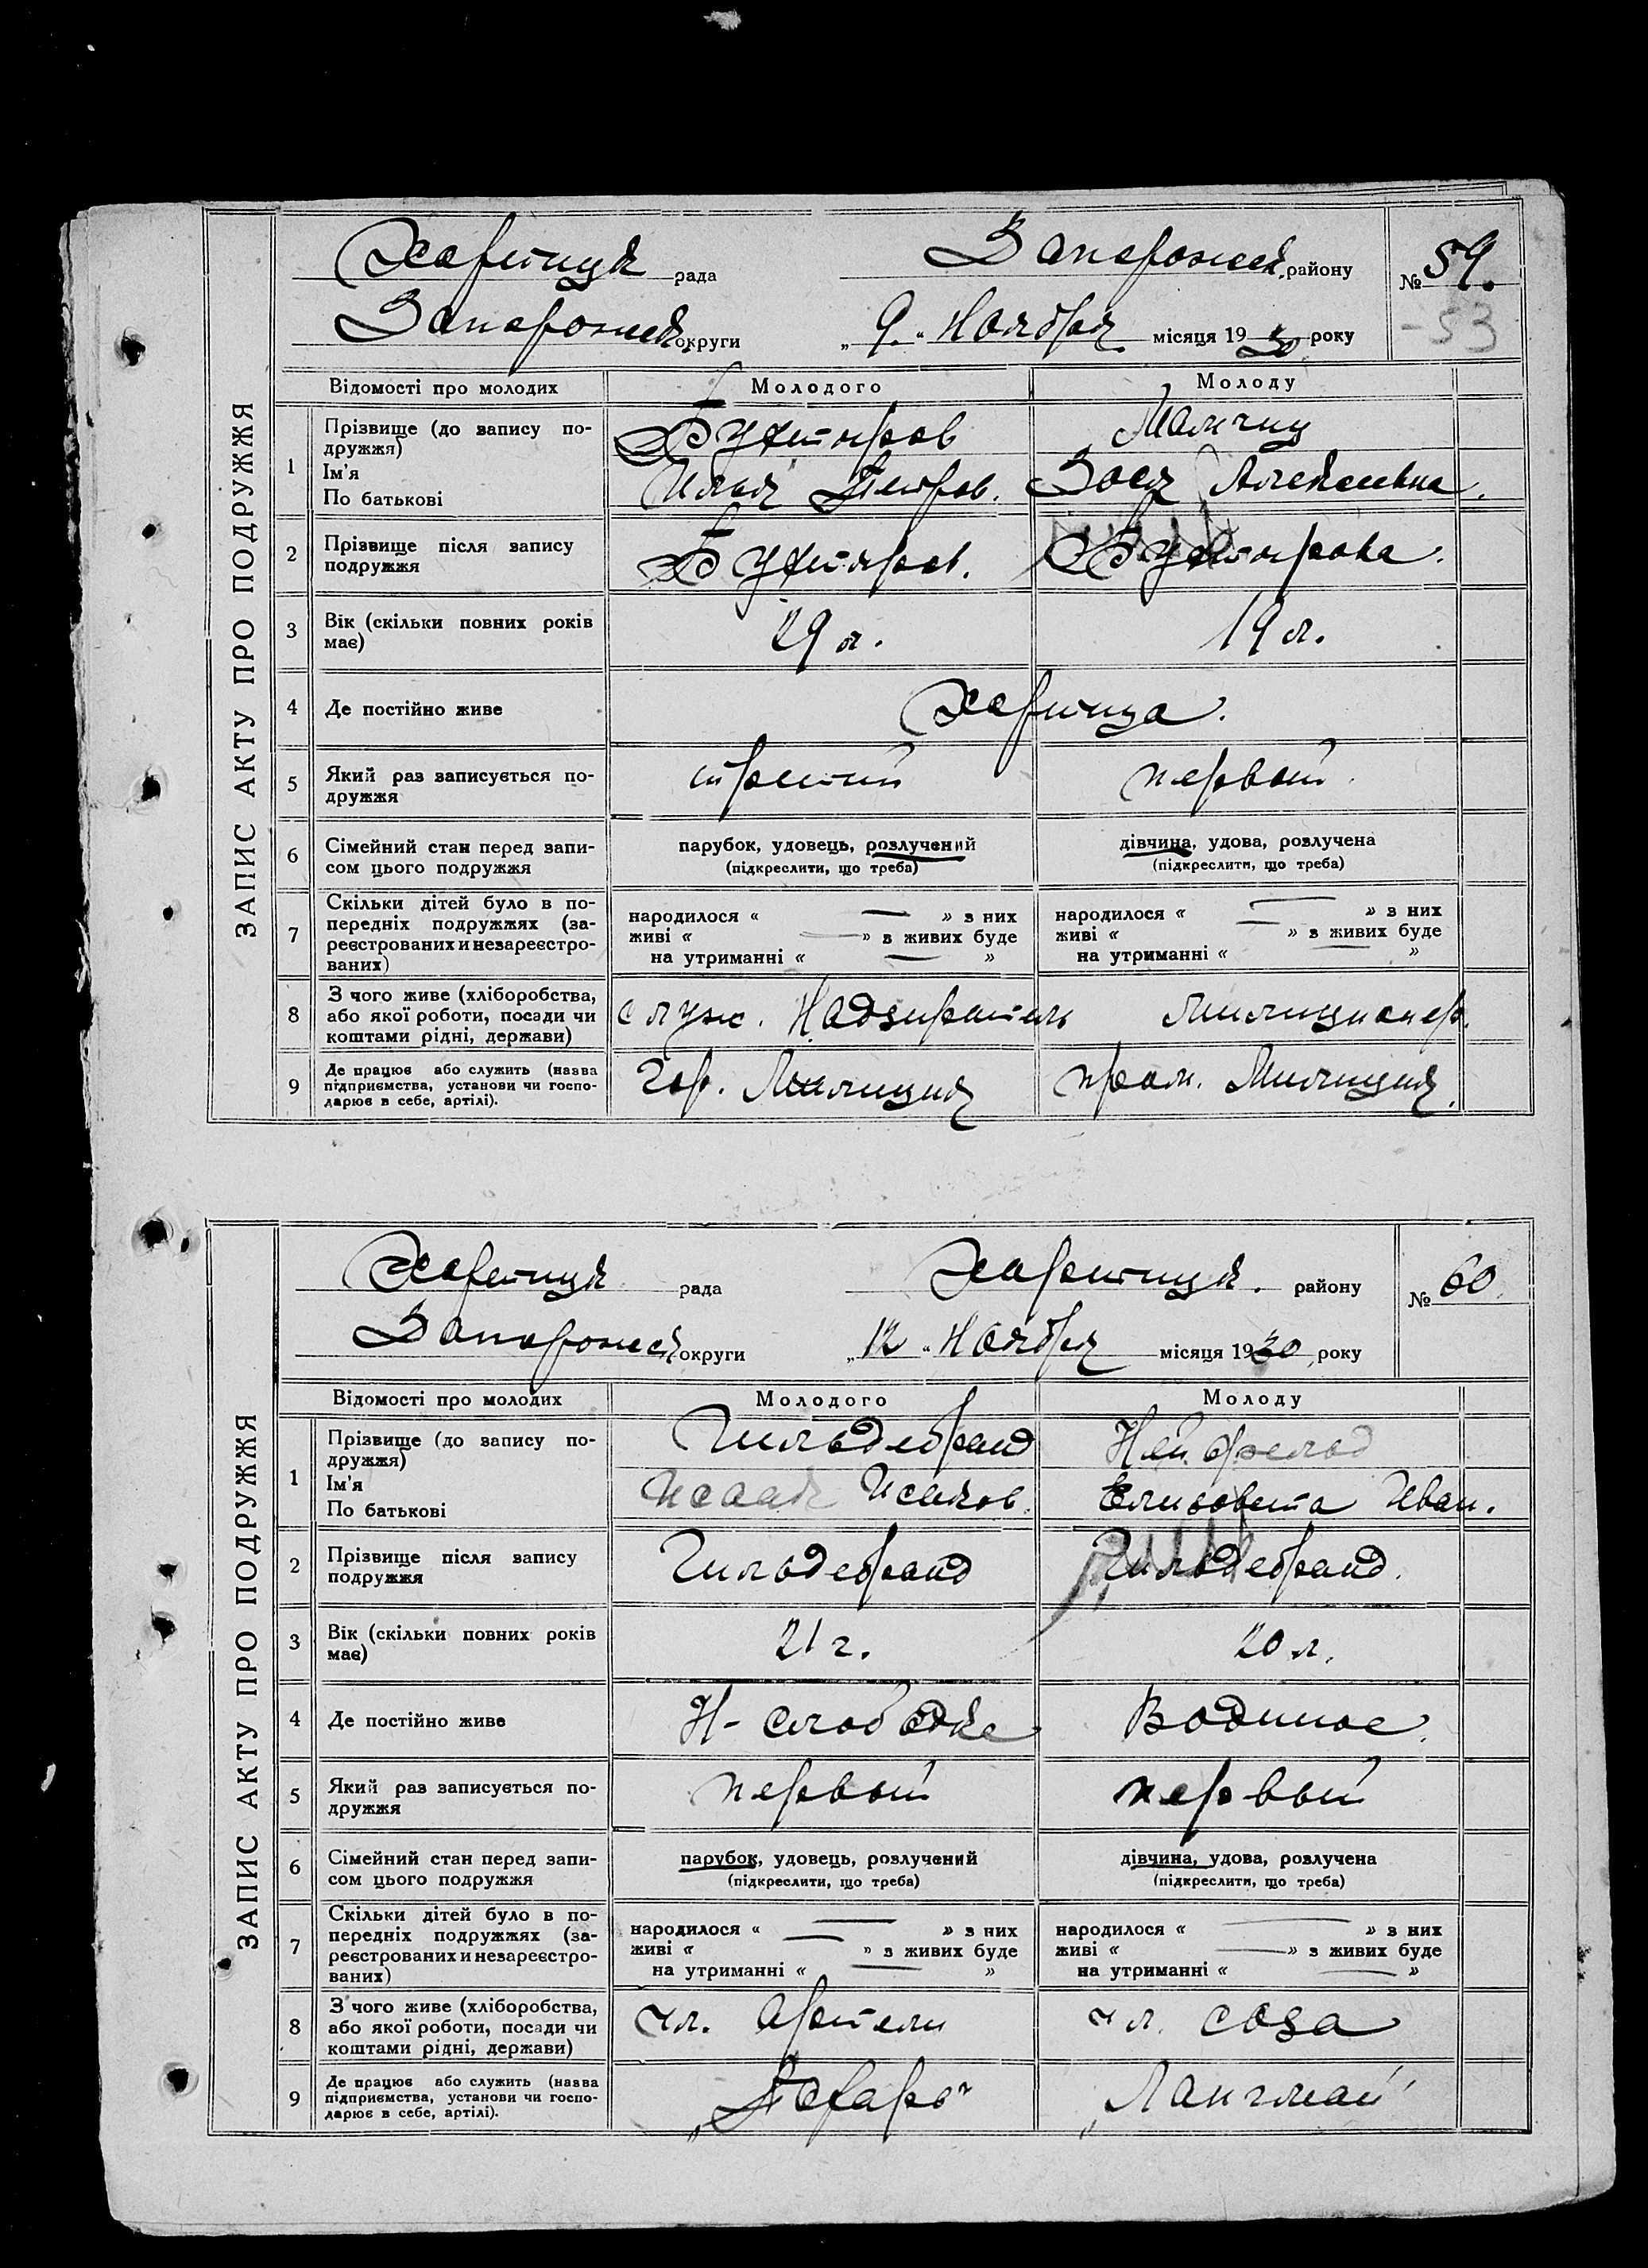 ЗАПИС АКТУ ПРО ПОДРУЖЖЯ
Хортицк рада Запорожск. району № 59.
Запорожск. округи „ 9. “ Ноября місяця 1930 року - 53
Відомості про молодих Молодого Молоду
1 Прізвище (до запису по-
дружжя)
Ім'я
По батькові
Бухтояров
Илья Петров. Зоя Алексеевна.
2 Прізвище після запису
подружжя
Бухтояров. Бухтоярова.
3 Вік (скільки повних років
має)
29 л. 19 л.
4 Де постійно живе Хортица.
5 Який раз записується по-
дружжя
третий первый
6 Сімейний стан перед запи-
сом цього подружжя
парубок, удовець, розлучений дівчина, удова, розлучена
(підкреслити, що треба) (підкреслити, що треба)
7 Скільки дітей було в по-
передніх подружжях (за-
реєстрованих и незареєстро-
ваних)
народилося « — » з них народилося « — » з них
живі « — » з живих буде живі « — » з живих буде
на утриманні « — » на утриманні « — »
8 З чого живе (хліборобства,
або якої роботи, посади чи
коштами рідні, держави)
служ. Надзиратель Милиционер.
9 Де працює або служить (назва
підприємства, установи чи госпо-
дарює в себе, артілі).
Гор. Милиция пром. Милиция.
ЗАПИС АКТУ ПРО ПОДРУЖЖЯ
Хортицк рада Хортицк. району № 60.
Запорожск округи „ 12 “ Ноября місяця 1930 року
Відомості про молодих Молодого Молоду
1 Прізвище (до запису по-
дружжя)
Ім'я
По батькові
Гильдебранд Нейфельд
Исаак Исаков. Елизовета Иван.
2 Прізвище після запису
подружжя
Гильдебранд Гильдебранд.
3 Вік (скільки повних років
має)
21 г. 20 л.
4 Де постійно живе Н-Слободке Водяное.
5 Який раз записується по-
дружжя
первый первый
6 Сімейний стан перед запи-
сом цього подружжя
парубок, удовець, розлучений дівчина, удова, розлучена
(підкреслити, що треба) (підкреслити, що треба)
7 Скільки дітей було в по-
передніх подружжях (за-
реєстрованих и незареєстро-
ваних)
народилося « — » з них народилося « — » з них
живі « — » з живих буде живі « — » з живих буде
на утриманні « — » на утриманні « — »
8 З чого живе (хліборобства,
або якої роботи, посади чи
коштами рідні, держави)
чл. Артели чл. соза
9 Де працює або служить (назва
підприємства, установи чи госпо-
дарює в себе, артілі).
„Пахарь“